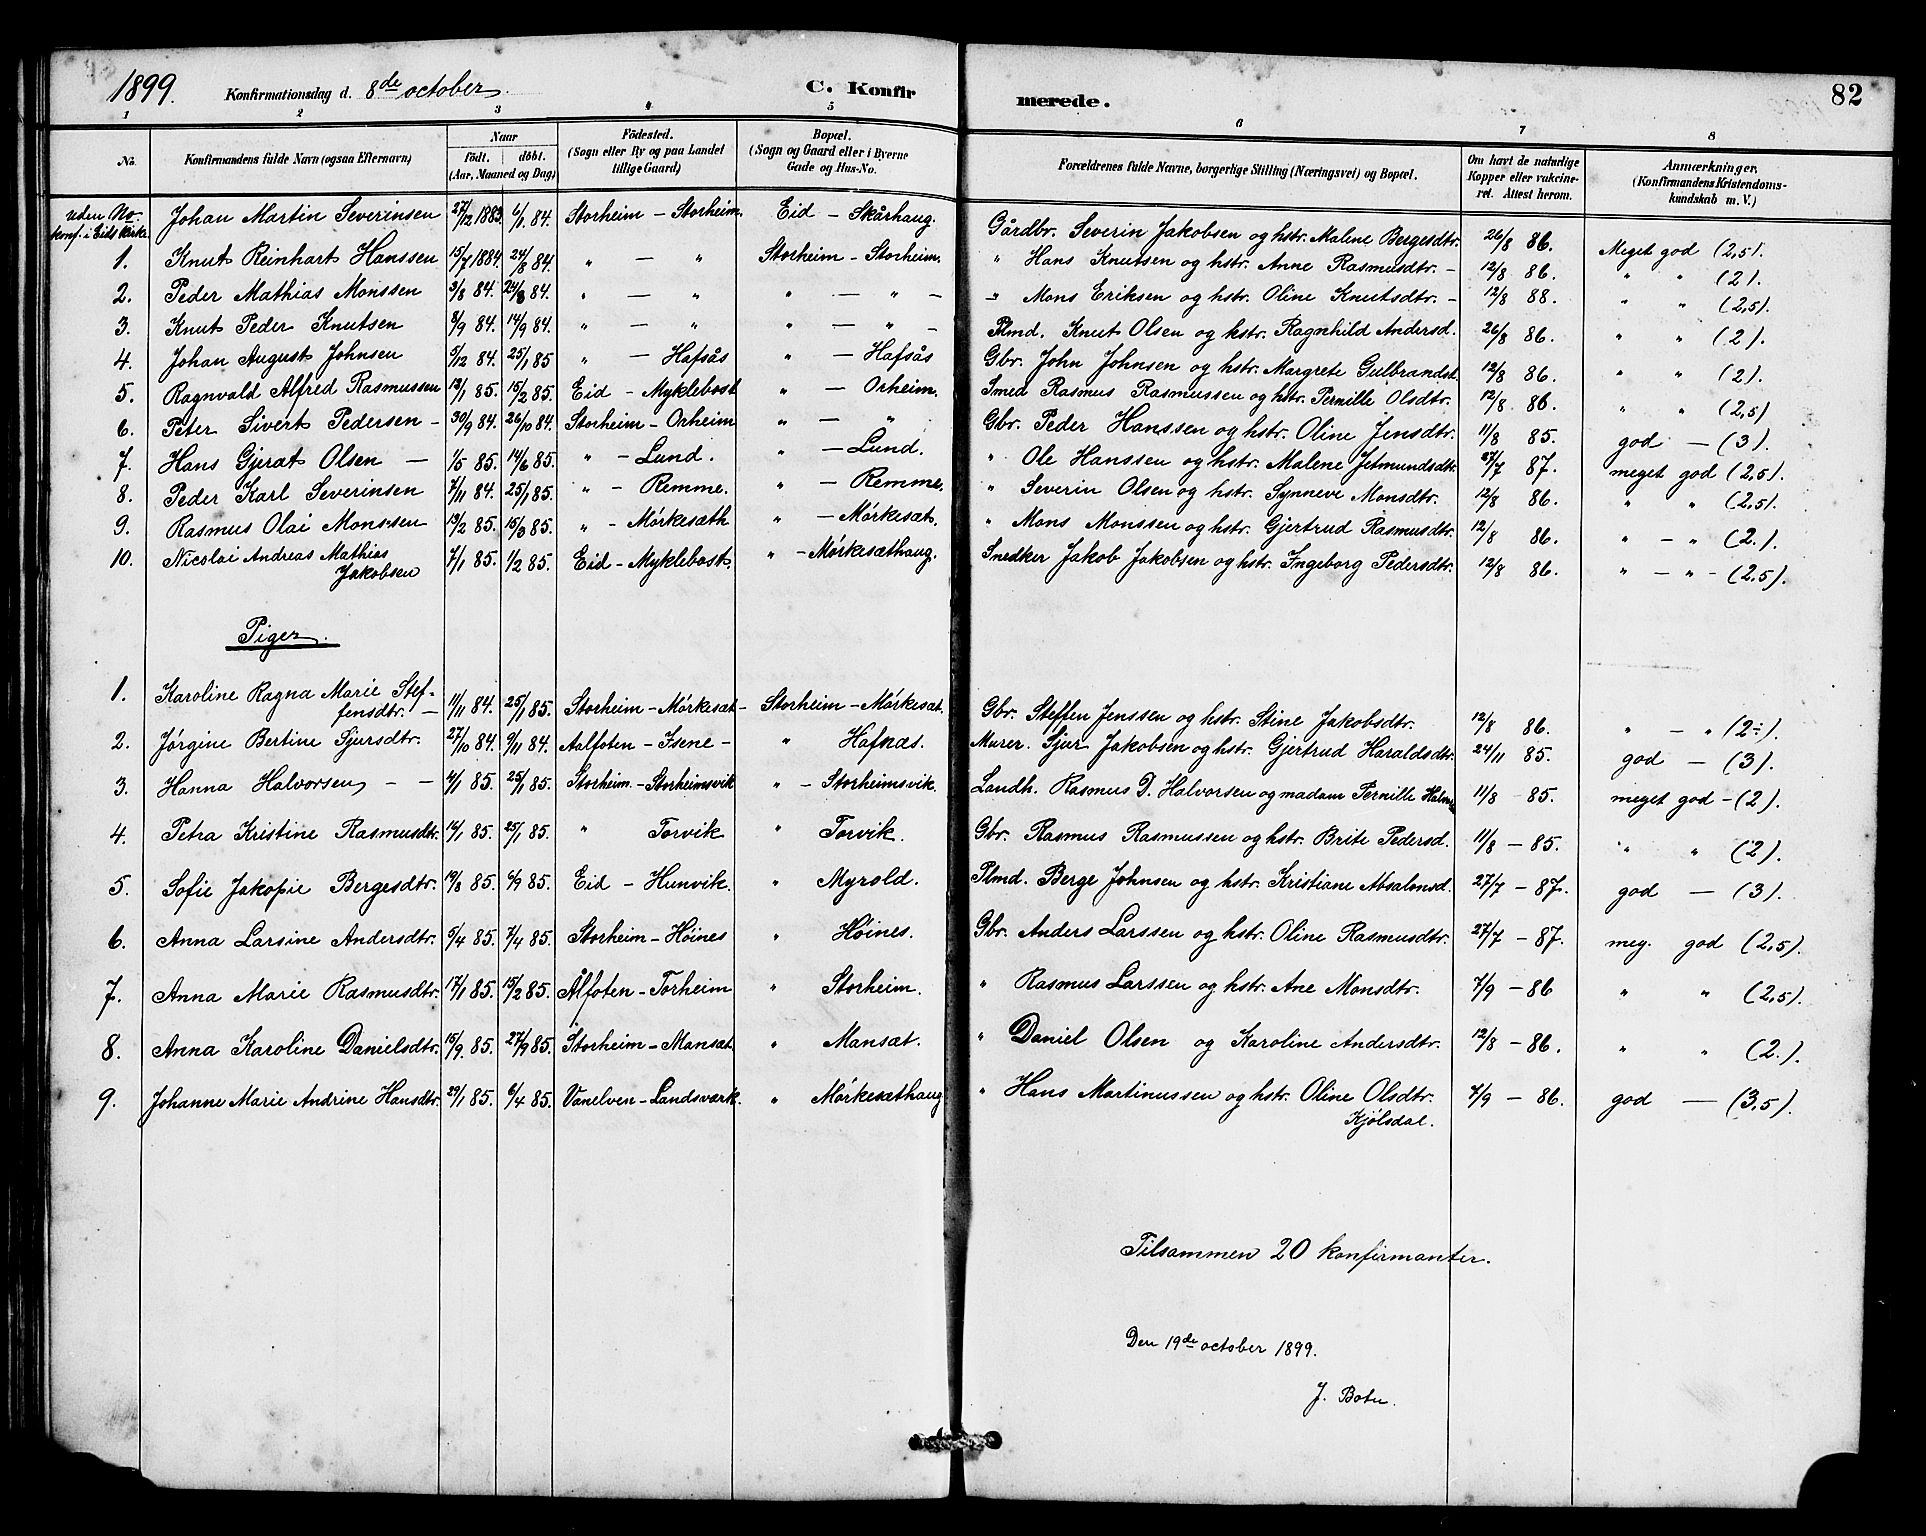 1899. Konfirmationsdag d. 8de october. C. Konfirmerede. 82
1 2 3 4 5 6 7 8
No. Konfirmandens fulde Navn (ogsaa Efternavn) Naar födt. döbt. (Aar, Maaned og Dag) Födested. (Sogn eller By og paa Landet tillige Gaard) Bopæl. (Sogn og Gaard eller i Byerne Gade og Hus-No. Forældrenes fulde Navne, borgerlige Stilling (Næringsvei) og Bopæl. Om havt de naturlige Kopper eller vakcineret. Attest herom. Anmærkninger. (Konfirmandens Kristendomskundskab m. V.)
uden No. konf. i Eids kirke Johan Martin Severinsen 27/12 1883 6/1 84. Storheim - Storheim. Eid - Skårhaug. Gårdbr. Severin Jakobsen og hstr. Malene Bergesdtr. 26/8 86. Meget god (2,5).
1. Knut Reinhart Hanssen 15/7 1884 24/8 84. " — " Storheim - Storheim. " Hans Knutsen og hstr. Anne Rasmusdtr. - 12/8 86. " " (2).
2. Peder Mathias Monssen 3/8 84. 24/8 84. " — " " — " - " Mons Eriksen og hstr. Oline Knutsdtr. - 12/8 88. " " (2,5).
3. Knut Peder Knutsen 8/9 84. 14/9 84. " — " " — " - Plmd. Knut Olsen og hstr. Ragnhild Andersd. 26/8 86. " " (2).
4. Johan August Johnsen 5/12 84. 25/1 85 " — Hafsås " — Hafsås Gbr. John Johnsen og hstr. Margrete Gulbrandsd. 12/8 86. " " (2).
5. Ragnvald Alfred Rasmussen 13/1 85. 15/2 85. Eid - Myklebost " — Orheim. Smed Rasmus Rasmussen og hstr. Pernille Olsdtr. 12/8 86. " " (2,5)
6. Peter Sivert Pedersen - 30/9 84. 26/10 84. Storheim - Orheim " — " Gbr. Peder Hanssen og hstr. Oline Jensdtr. 11/8 85. god — (3).
7. Hans Gjerat Olsen — 1/5 85. 14/6 85. " - Lund. " — Lund. " Ole Hanssen og hstr. Malene Jetmundsdtr. 27/7 87. meget god (2,5).
8. Peder Karl Severinsen 7/11 84. 25/1 85. " - Remme. " — Remme. " Severin Olsen og hstr. Synneve Monsdtr. 12/8 86. " " (2,5).
9. Rasmus Olai Monssen 13/2 85. 15/3 85. " - Mórkesæth " — Mórkesæt. " Mons Monssen og hstr. Gjertrud Rasmusdtr. 12/8 86. " - " (2.).
10. Nicolai Andreas Mathias
Jakobsen 7/1 85. 1/2 85. Eid - Myklebost. " - Mórkesæthaug. Snedker Jakob Jakobsen og hstr. Ingeborg Pedersdtr. 12/8 86. " — " - (2,5).
Piger.
1. Karoline Ragna Marie Stef-
fensdtr. — 11/11 84. 25/1 85. Storheim - Mórkesæt - Storheim - Mórkesæt. Gbr. Steffen Jenssen og hstr. Stine Jakobsdtr. 12/8 86. " — " (2÷).
2. Jórgine Bertine Sjursdtr. 27/10 84. 9/11 84. Aalfoten - Isene - " Hafnæs. Murer. Sjur Jakobsen og hstr. Gjertrud Haraldsdtr. 24/11 85. god — (3).
3. Hanna Halvorsen - - 4/1 85. 25/1 85. Storheim - Storheimsvik " - Storheimsvik. Landh. Rasmus D. Halvorsen og madam Pernille 11/8 85. meget god - (2).
4. Petra Kristine Rasmusdtr. 14/1 85. 25/1 85. " Torvik " Torvik. Gbr. Rasmus Rasmussen og hstr. Brite Pedersd. 11/8 - 85. " " (2).
5. Sofie Jakopie Bergesdtr. 19/8 85. 6/9 85. Eid - Hunvik. " Myrold. Plmd. Berge Johnsen og hstr. Kristiane Absalonsd. 27/7 - 87. god — (3).
6. Anna Larsine Andersdtr. 5/4 85. 7/4 85. Storheim - Hóines " Hóines. Gbr. Anders Larssen og hstr. Oline Rasmusdtr. 27/7 - 87. meg. god (2,5).
7. Anna Marie Rasmusdtr. 17/1 85. 15/2 85. Ålfoten - Torheim " Storheim. " Rasmus Larssen og hstr. Ane Monsdtr. 7/9 - 86 " " (2,5).
8. Anna Karoline Danielsdtr. 15/9. 85. 27/9 85. Storheim - Mansæt. " Mansæt. " Daniel Olsen og Karoline Andersdtr. 12/8 - 86. " " (2.).
9. Johanne Marie Andrine Hansdtr. 29/1 85. 6/4 85. Vanelven - Landsværk. " Mórkesæthaug " Hans Martinussen og hstr. Oline Olsdtr. 7/9 - 86. god — (3,5).
Kjólsdal.
Tilsammen 20 konfirmanter.
Den 19de october 1899.
J. Botn.